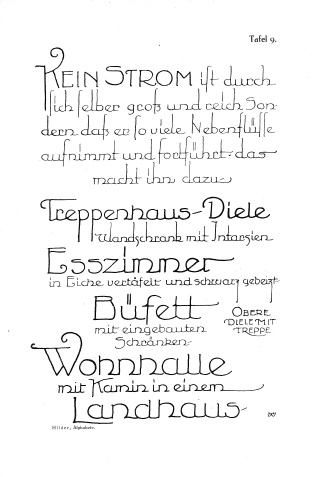 Tafel 9.
KEIN STROM ist durch
sich selber groß und reich Son-
dern daß er so viele Nebenflüsse
aufnimmt und fortführt-das
macht ihn dazu
Treppenhaus-Diele
Wandschrank mit Intarsien
Esszimmer
in Eiche vertäfelt und schwarz gebeizt
Büfett
mit eingebauten
Schränken
OBERE
DIELE MIT
TREPPE
Wohnhalle
mit Kamin in einem
Landhaus
Hilder, Alphabete.